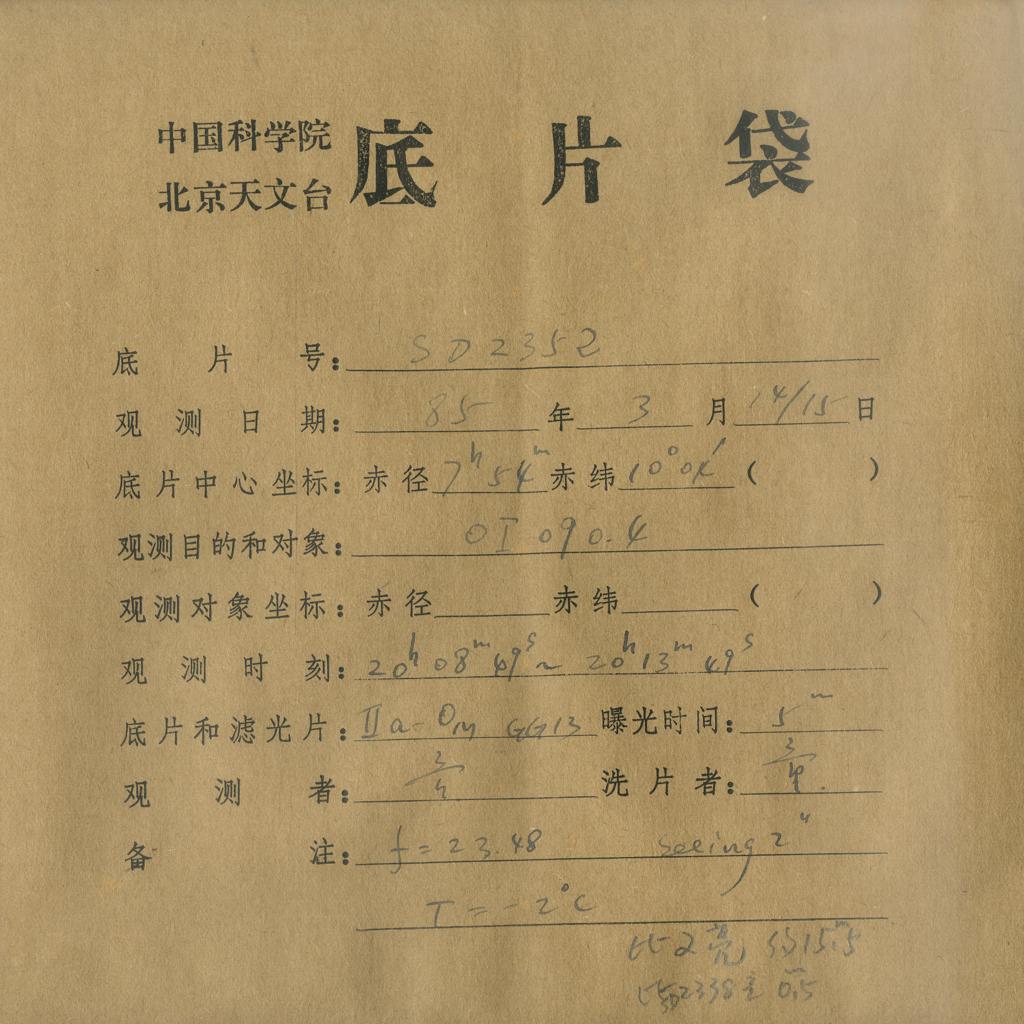 中国科学院
北京天文台
底片袋
底片号：SD2352
观测日期：85年3月14/15日
底片中心坐标：赤径7h54m赤纬10°04′（ ）
观测目的和对象：OI 090.4
观测对象坐标：赤径 赤纬 （ ）
观测时刻：20h08m49s~20h13m49s
底片和滤光片：IIa-O GG13 曝光时间：5m
观测者： 洗片者：
备注：f=23.48 seeing 2"
T=-2°C
比2亮 约15m.5
2338 0m.5